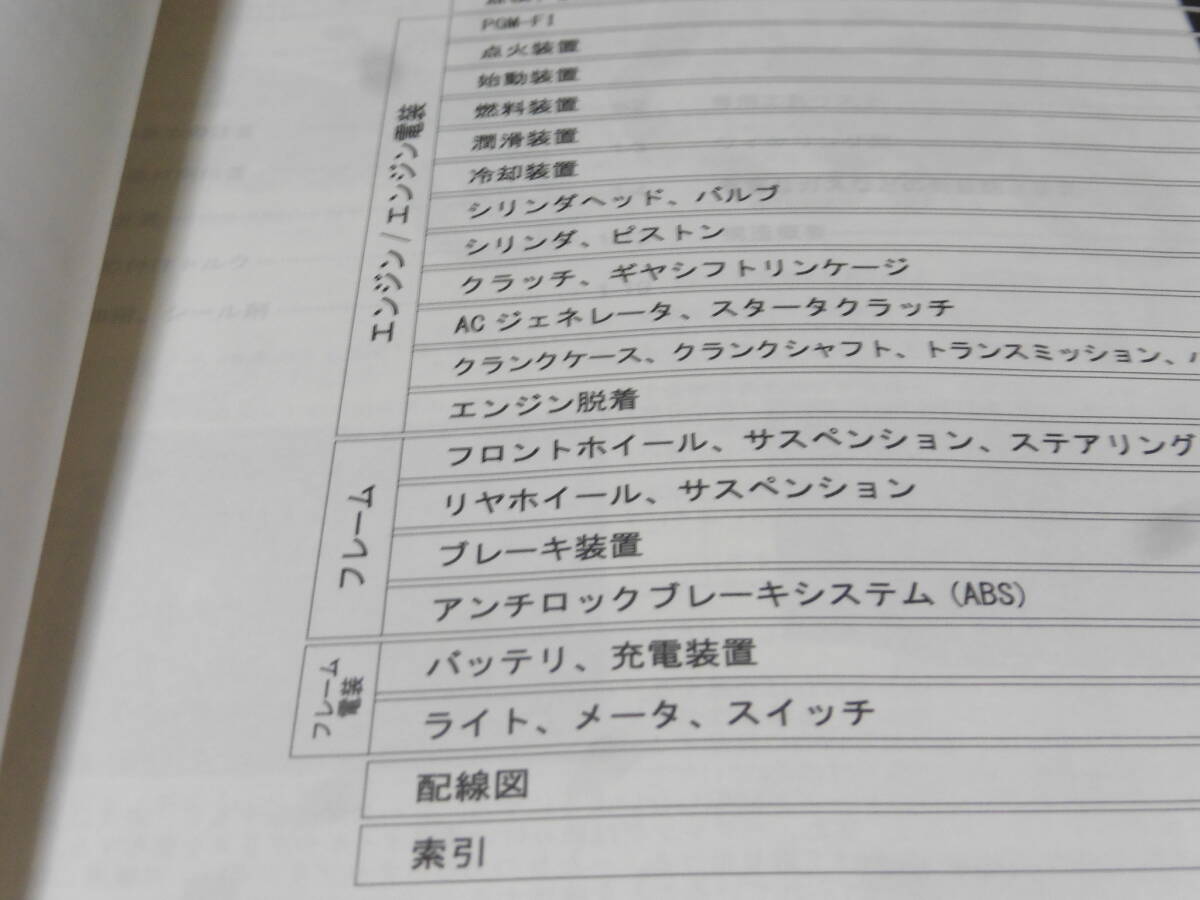 PGM-FI
点火装置
始動装置
燃料装置
潤滑装置
冷却装置
シリンダヘッド、バルブ
シリンダ、ピストン
クラッチ、ギヤシフトリンケージ
ACジェネレータ、スタータクラッチ
クランクケース、クランクシャフト、トランスミッション、
エンジン脱着
エンジン/エンジン電装
フロントホイール、サスペンション、ステアリング
リヤホイール、サスペンション
ブレーキ装置
アンチロックブレーキシステム(ABS)
フレーム
バッテリ、充電装置
ライト、メータ、スイッチ
フレーム
電装
配線図
索引